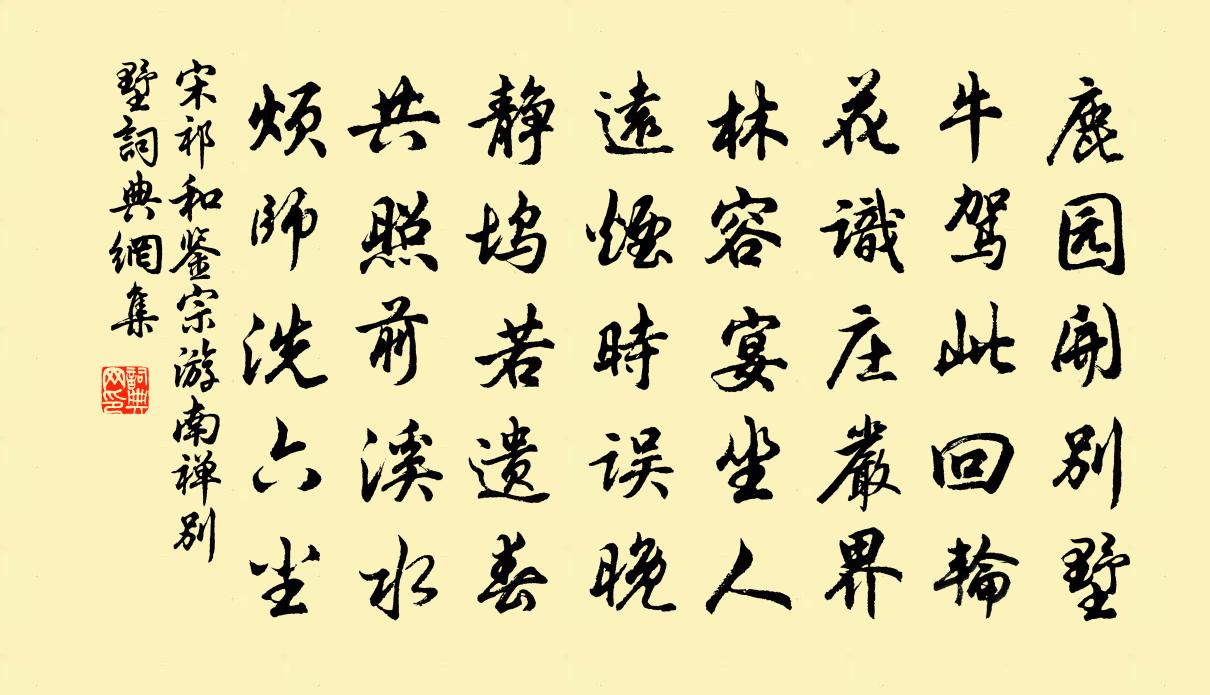 鹿园開别墅
牛驾此回輪
花識庄嚴界
林容宴坐人
遠煙時误晚
静坞若遗春
共照前溪水
烦師洗六尘
宋祁和鉴宗游南禅别
墅詞典網集
詞典
网印